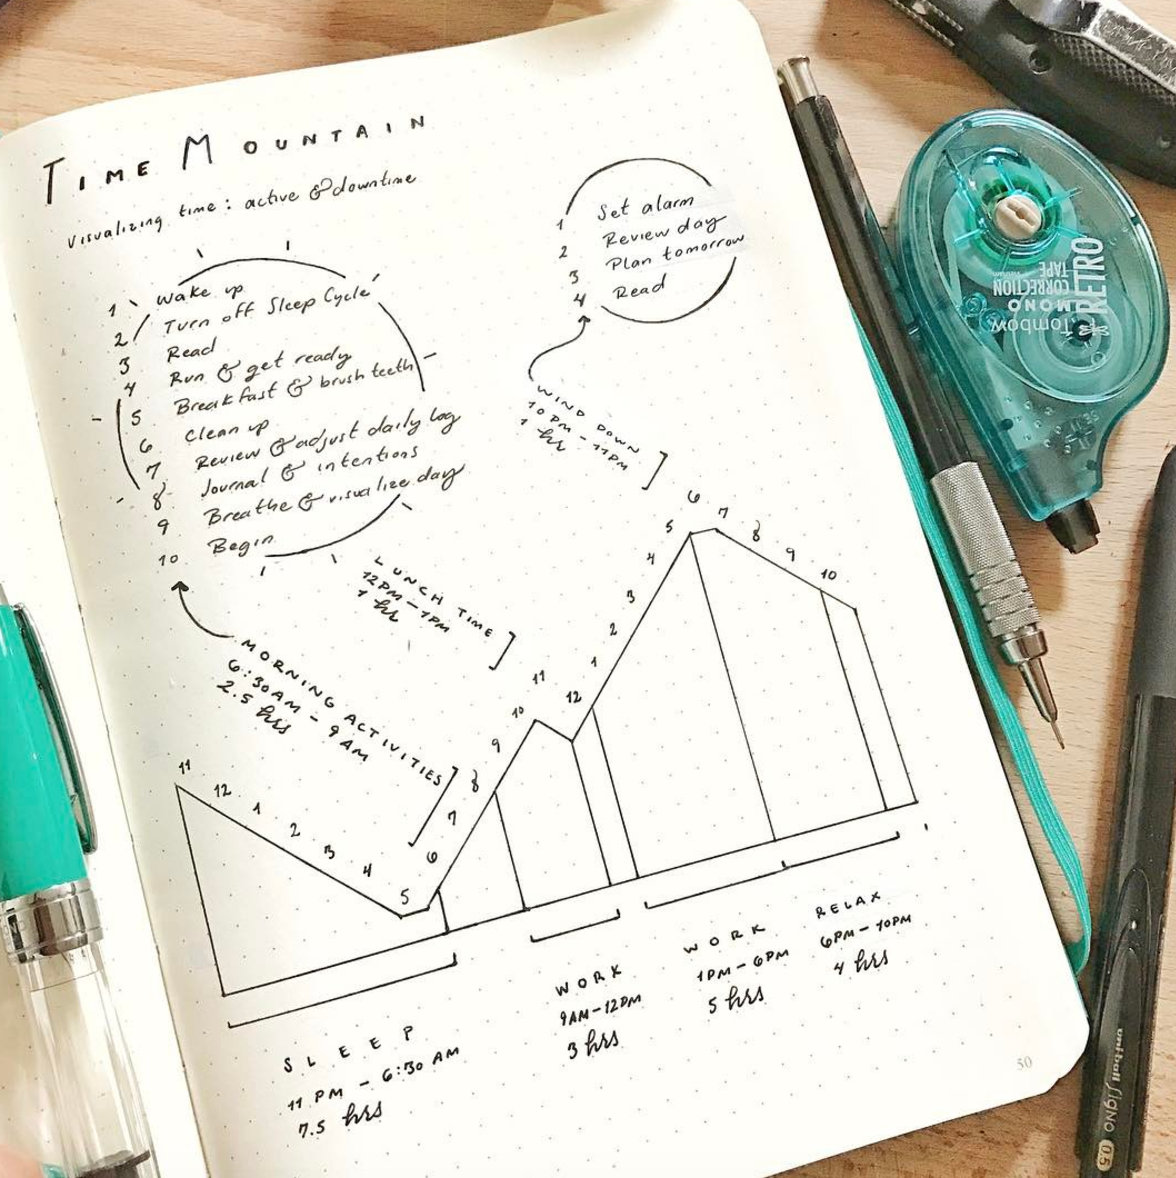 TIME MOUNTAIN
Visualizing time: active & downtime
1 Wake up
2 Turn off Sleep Cycle
3 Read
4 Run & get ready
5 Breakfast & brush teeth
6 Clean up
7 Review & adjust daily log
8 Journal & intentions
9 Breathe & visualize day
10 Begin
1 Set alarm
2 Review day
3 Plan tomorrow
4 Read
WIND DOWN
10PM - 11PM
1 hr
LUNCH TIME
12PM - 1PM
1 hr
MORNING ACTIVITIES
6:30AM - 9AM
2.5 hrs
11 12 1 2 3 4 5 6 7 8 9 10 11 12 1 2 3 4 5 6 7 8 9 10
SLEEP
11 PM - 6:30 AM
7.5 hrs
WORK
9AM-12PM
3 hrs
WORK
1PM-6PM
5 hrs
RELAX
6PM-10PM
4 hrs
50
Tombow
MONO
CORRECTION
TAPE
RETRO
uni-ball Signo 0.5